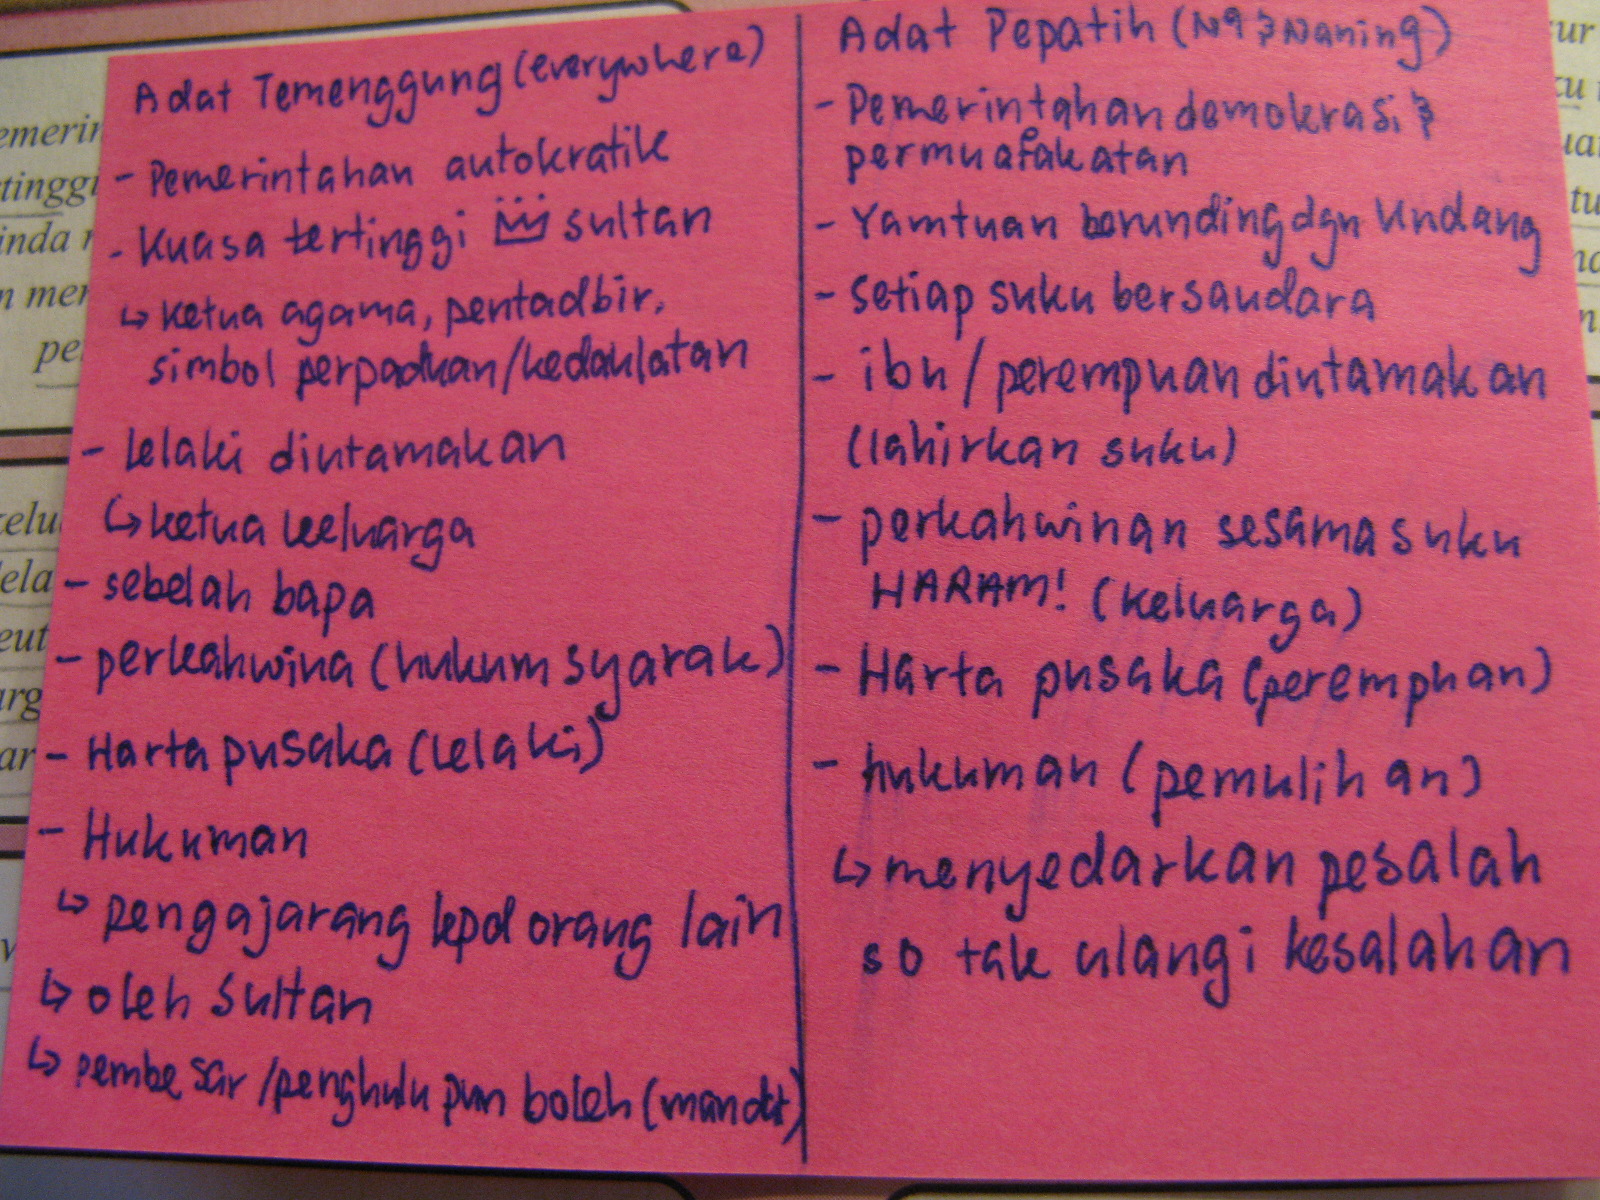 Adat Temenggung (everywhere)
- Pemerintahan autokratik
- Kuasa tertinggi sultan
↳ ketua agama, pentadbir,
simbol perpaduan/kedaulatan
- lelaki diutamakan
↳ ketua keluarga
- sebelah bapa
- perkahwina (hukum syarak)
- Harta pusaka (lelaki)
- Hukuman
↳ pengajarang kpd orang lain
↳ oleh sultan
↳ pembesar/penghulu pun boleh (mandat)
Adat Pepatih (N9 & Naning)
- Pemerintahan demokrasi &
permuafakatan
- Yamtuan berunding dgn Undang
- setiap suku bersaudara
- ibu/perempuan diutamakan
(lahirkan suku)
- perkahwinan sesama suku
HARAM! (keluarga)
- Harta pusaka (perempuan)
- hukuman (pemulihan)
↳ menyedarkan pesalah
so tak ulangi kesalahan